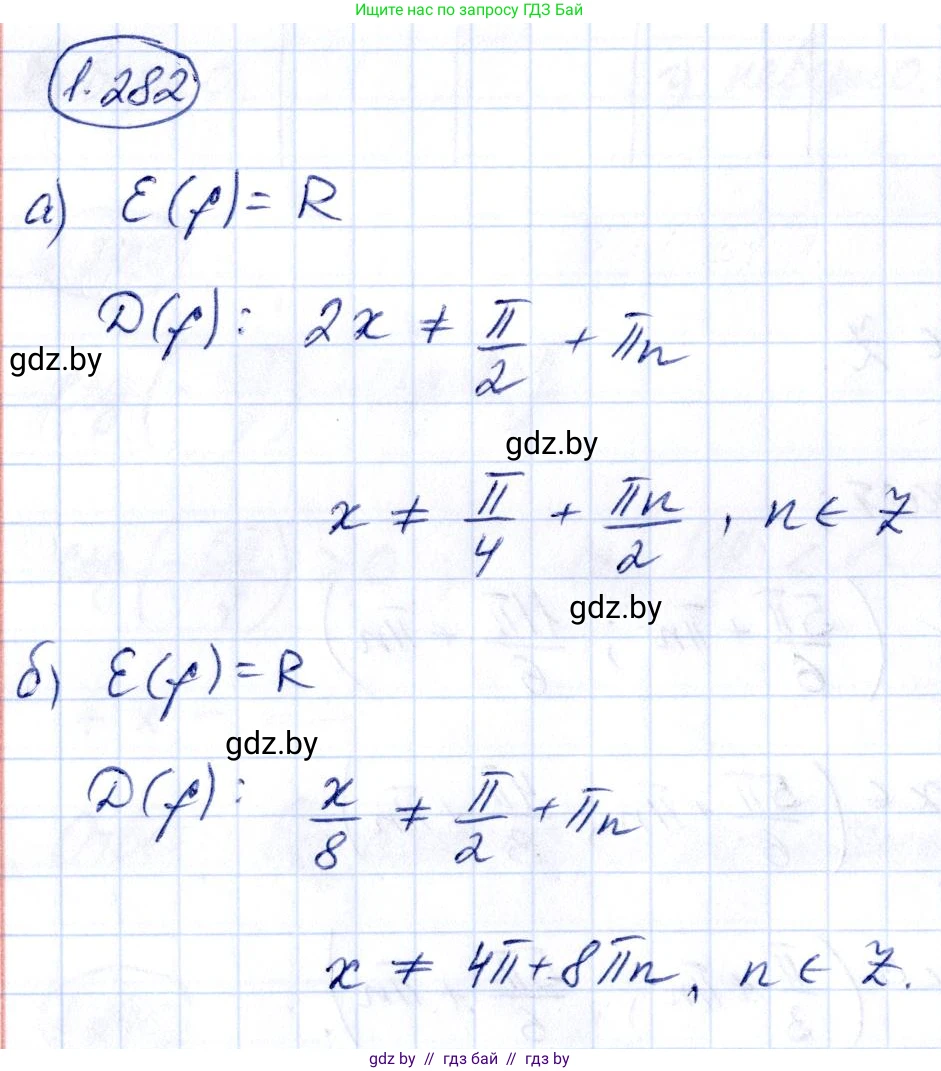 Ищите нас по запросу ГДЗ Бай
1.282
а) E(f) = R
D(f): 2x ≠ π/2 + πn
gdz.by
gdz.by
x ≠ π/4 + πn/2, n ∈ Z
gdz.by
б) E(f) = R
gdz.by
D(f): x/8 ≠ π/2 + πn
x ≠ 4π + 8πn, n ∈ Z.
gdz by // гдз бай // gdz by